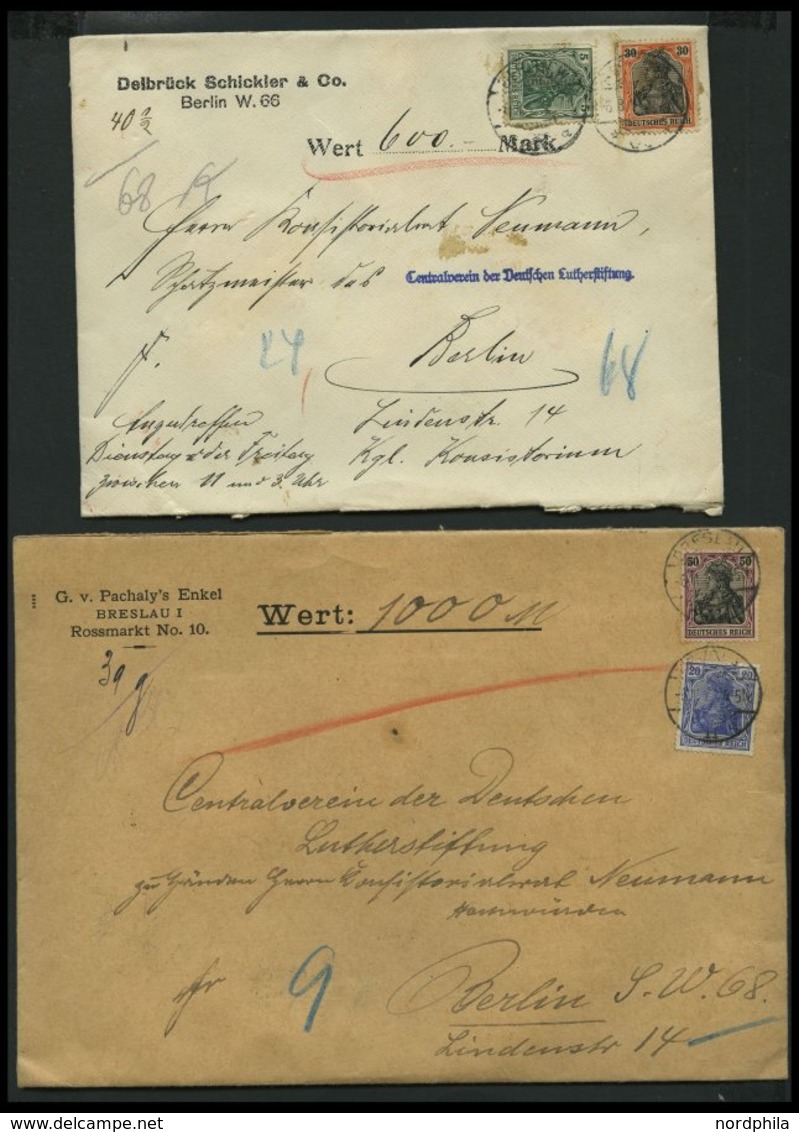 Delbrück Schickler & Co.
Berlin W. 66
40 ½
5 5
30 30
DEUTSCHES REICH
Wert 600.- Mark.
68
Herrn Konsistorialrat Neumann,
Schatzmeister des Centralverein der Deutschen Lutherstiftung.
24
Berlin
68
Anzutreffen
Lindenstr. 14
Dienstag oder Freitag
Kgl. Konsistorium
zwischen 11 und 3 Uhr
G. v. Pachaly's Enkel
BRESLAU I
Rossmarkt No. 10.
Wert: 1000 M
BRESLAU
50 50
DEUTSCHES REICH
39 g
20 20
DEUTSCHES REICH
Centralverein der Deutschen
Lutherstiftung
zu Händen Herrn Konsistorialrat Neumann
Hochwürden
fr
9
Berlin S.W. 68.
Lindenstr 14
www.delcampe.net
nordphila